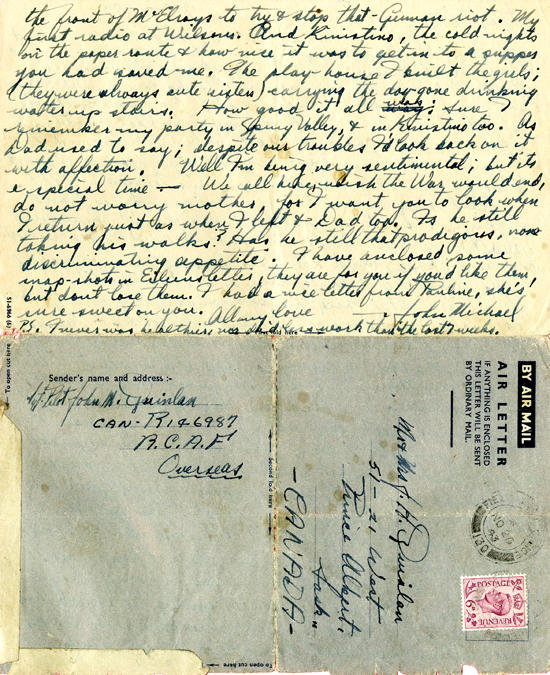 the front of McElroys to try & stop that Gunman riot. My
first radio at Wilsons. And Kinistino, the cold nights
on the paper route & how nice it was to get in to a supper
you had saved me. The play-house I built the girls;
(they were always cute sisters) carrying the day-gone drinking
water up stairs. How good it all was. Sure I
remember my party in Spring Valley, & in Kinistino too. As
Dad used to say; despite our troubles I'd look back on it
with affection. Well I'm being very sentimental; but its
a special time — We all here wish the War would end,
do not worry mother, for I want you to look when
I return just as when I left & Dad too. Is he still
taking his walks? Has he still that prodigious, non
discriminating appetite. I have enclosed some
snap-shots in Eileens letter, they are for you if you'd like them,
but dont lose them. I had a nice letter from Pauline, she's
sure sweet on you.
All my love
John Michael
PS. I never was healthier, nor did more work than the last weeks.
51-4966 (6)
To open cut here
Sender's name and address :-
John M. Quinlan
CAN-R146987
R.C.A.F
Overseas
Second fold here
To open cut here
BY AIR MAIL
AIR LETTER
IF ANYTHING IS ENCLOSED
THIS LETTER WILL BE SENT
BY ORDINARY MAIL.
Mr & Mrs J. H. Quinlan
51-21 West
Prince Albert,
Sask.,
-CANADA-
FIELD POST OFFICE
NO
43
POSTAGE
6D
REVENUE